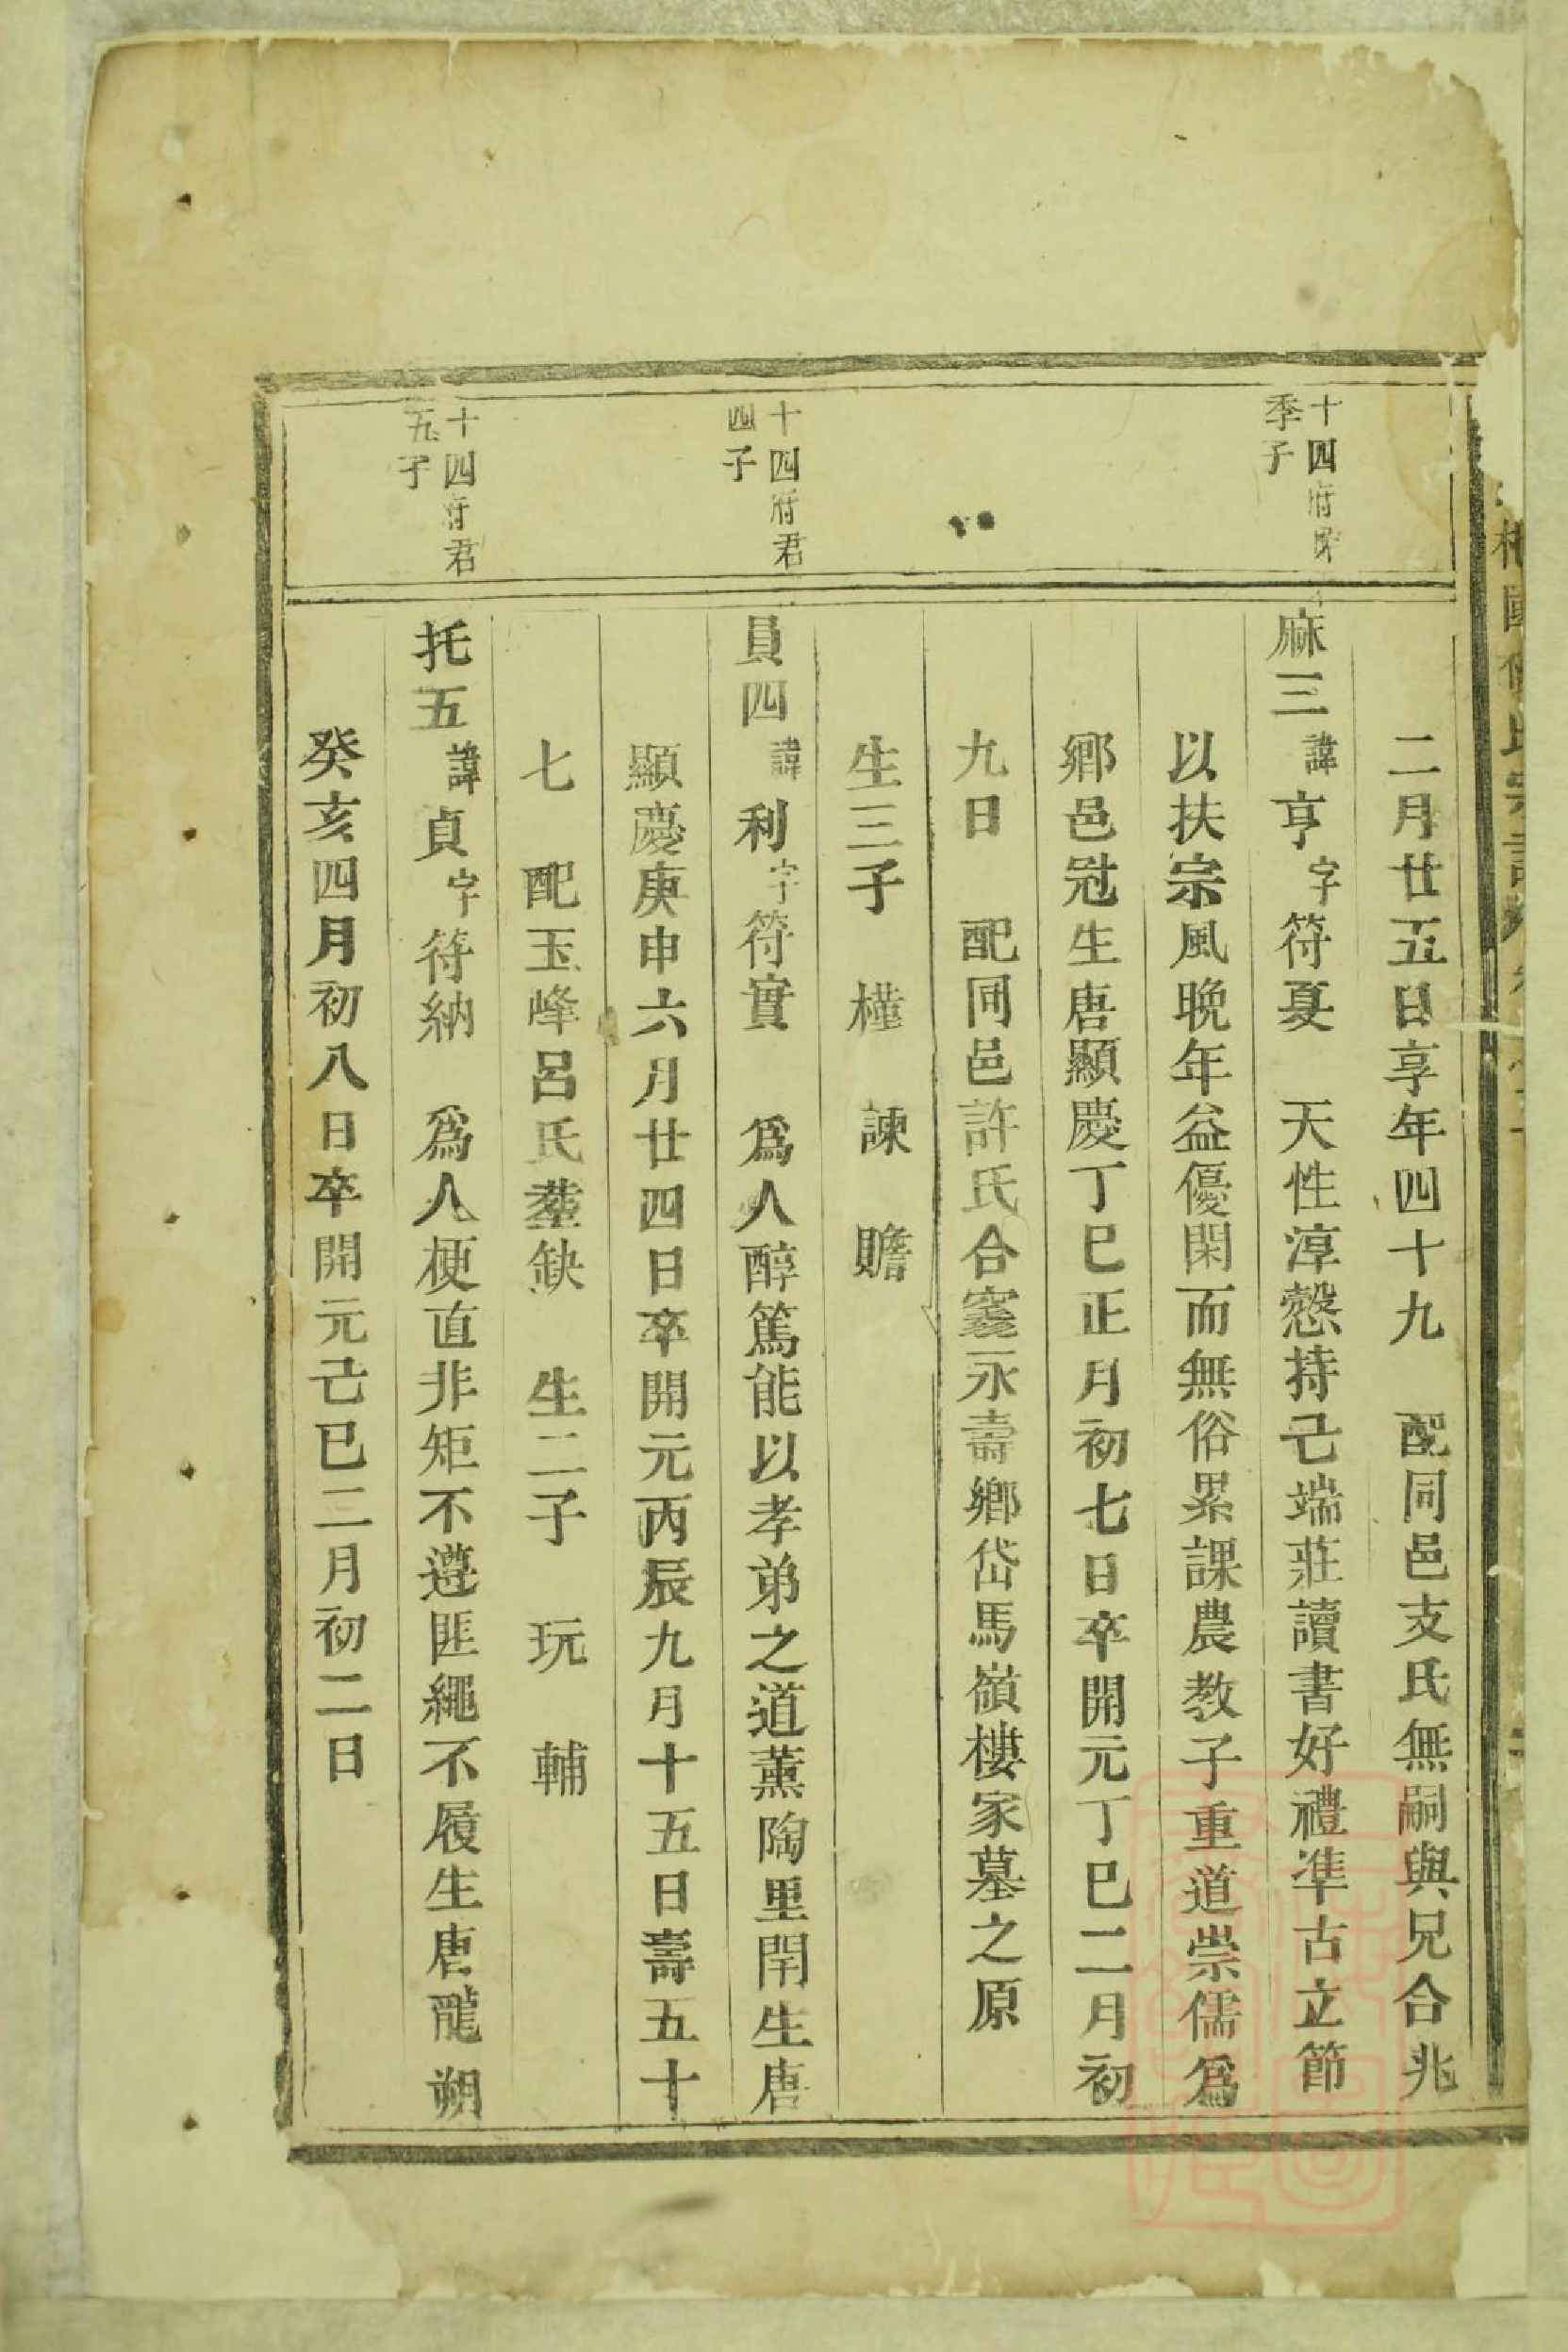 二月廿五日享年四十九　配同邑支氏無嗣與兄合兆
十四府君
季子
麻三諱亨字符夏　天性淳慤持己端莊讀書好禮準古立節
以扶宗風晚年益優閑而無俗累課農教子重道崇儒爲
鄉邑冠生唐顯慶丁巳正月初七日卒開元丁巳二月初
九日　配同邑許氏合窆永壽鄉岱馬嶺樓家墓之原
生三子　槿　諫　贍
十四府君
四子
員四諱利字符實　爲人醇篤能以孝弟之道薰陶里閈生唐
顯慶庚申六月廿四日卒開元丙辰九月十五日壽五十
七　配玉峰呂氏塟缺　生二子　玩　輔
十四府君
五子
托五諱貞字符納　爲人梗直非矩不遵匪繩不履生唐龍朔
癸亥四月初八日卒開元己巳二月初二日